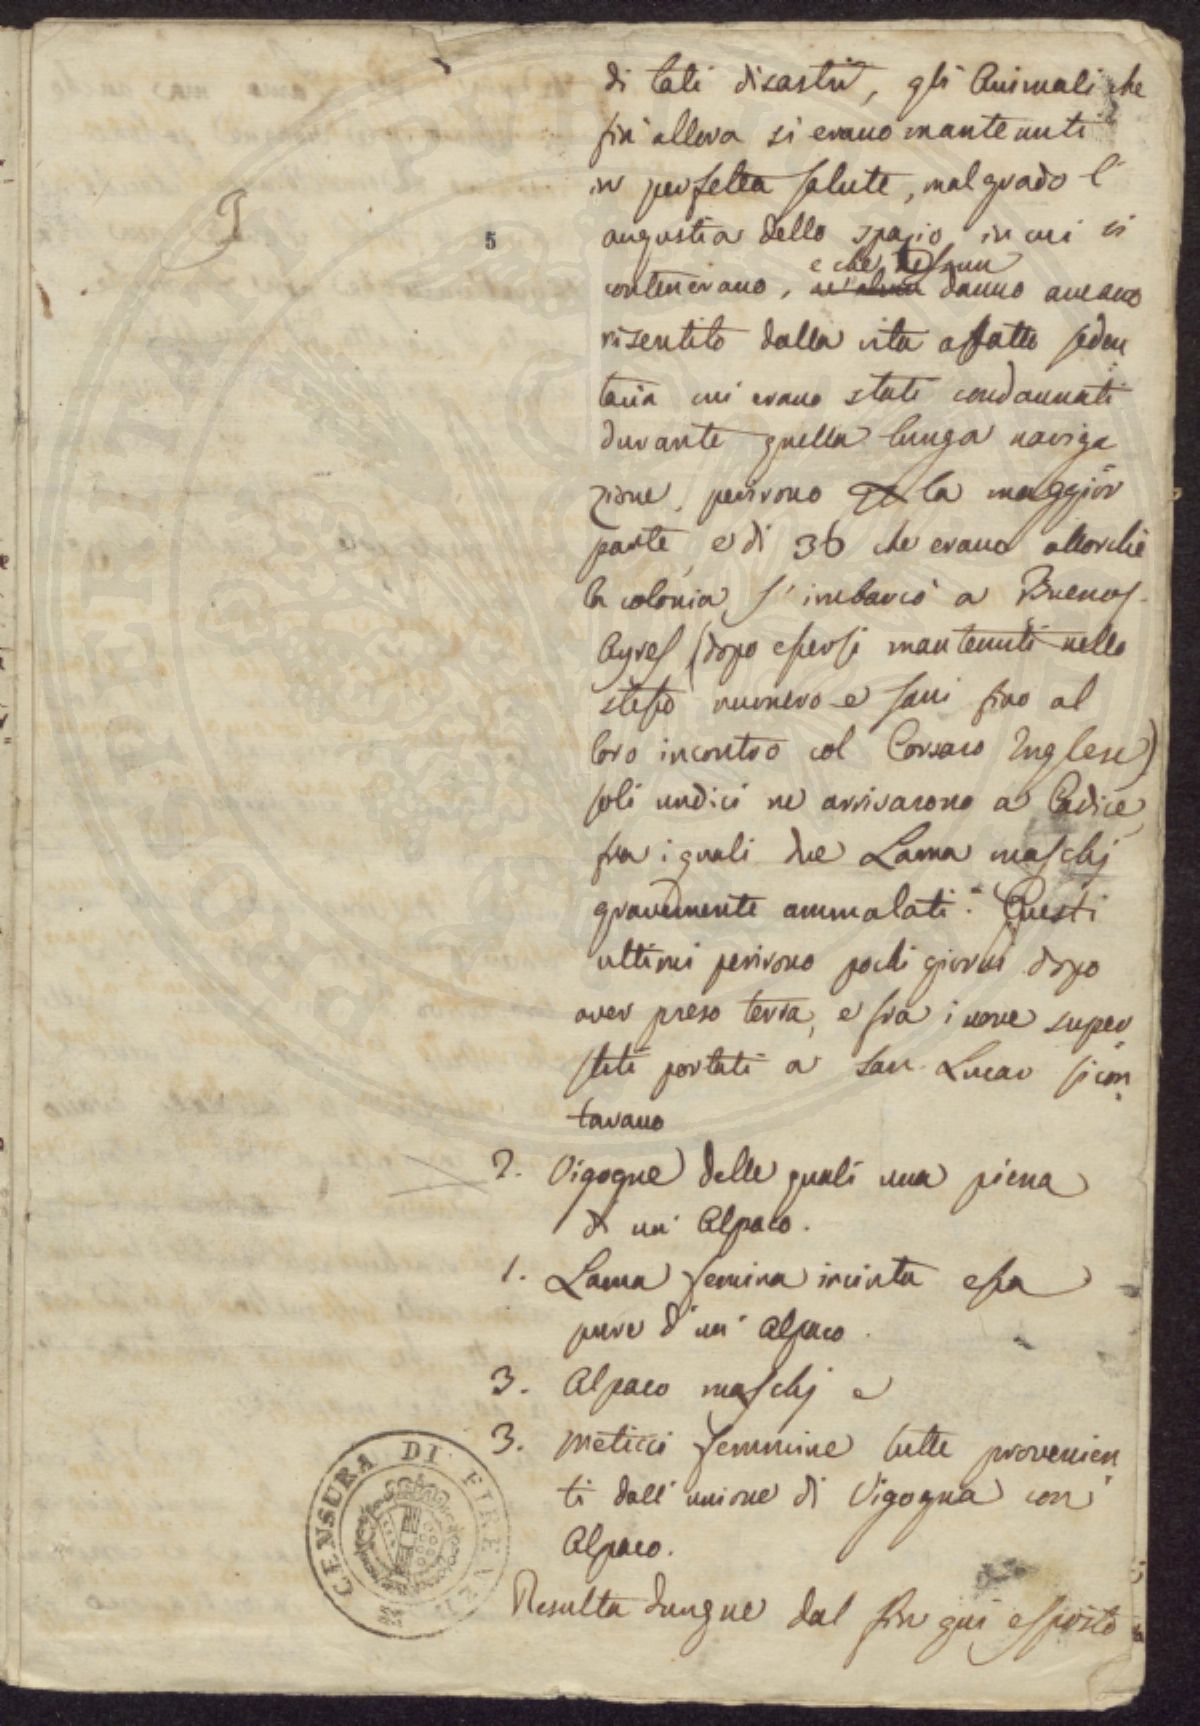 di tali disastri, gli Animali che
fin' allora si erano mantenuti
in perfetta salute, malgrado l'
5
angustia dello spazio in cui si
e che nessun
contenevano, danno aveano
risentito dalla vita affatto seden
taria cui erano stati condannati
durante quella lunga naviga
zione, perirono la maggior
parte, e di 36 che erano allorchè
la colonia s'imbarcò a Buenos-
Ayres (dopo essersi mantenuti nello
stesso numero e sani fino al
loro incontro col Corsaro Inglese)
soli undici ne arrivarono a Cadice,
fra i quali due Lama maschj
gravemente ammalati. Questi
ultimi perirono pochi giorni dopo
aver preso terra, e fra i nove super
stiti portati a San Lucar si con
tavano
2. Vigogne delle quali una piena
d' un' Alpaco.
1. Lama femina incinta essa
pure d' un' Alpaco.
3. Alpaco maschj e
3. Meticci femmine tutte provenien
ti dall' unione di Vigogna con
Alpaco.
Resulta dunque dal fin qui esposto
CENSURA DI FIRENZE